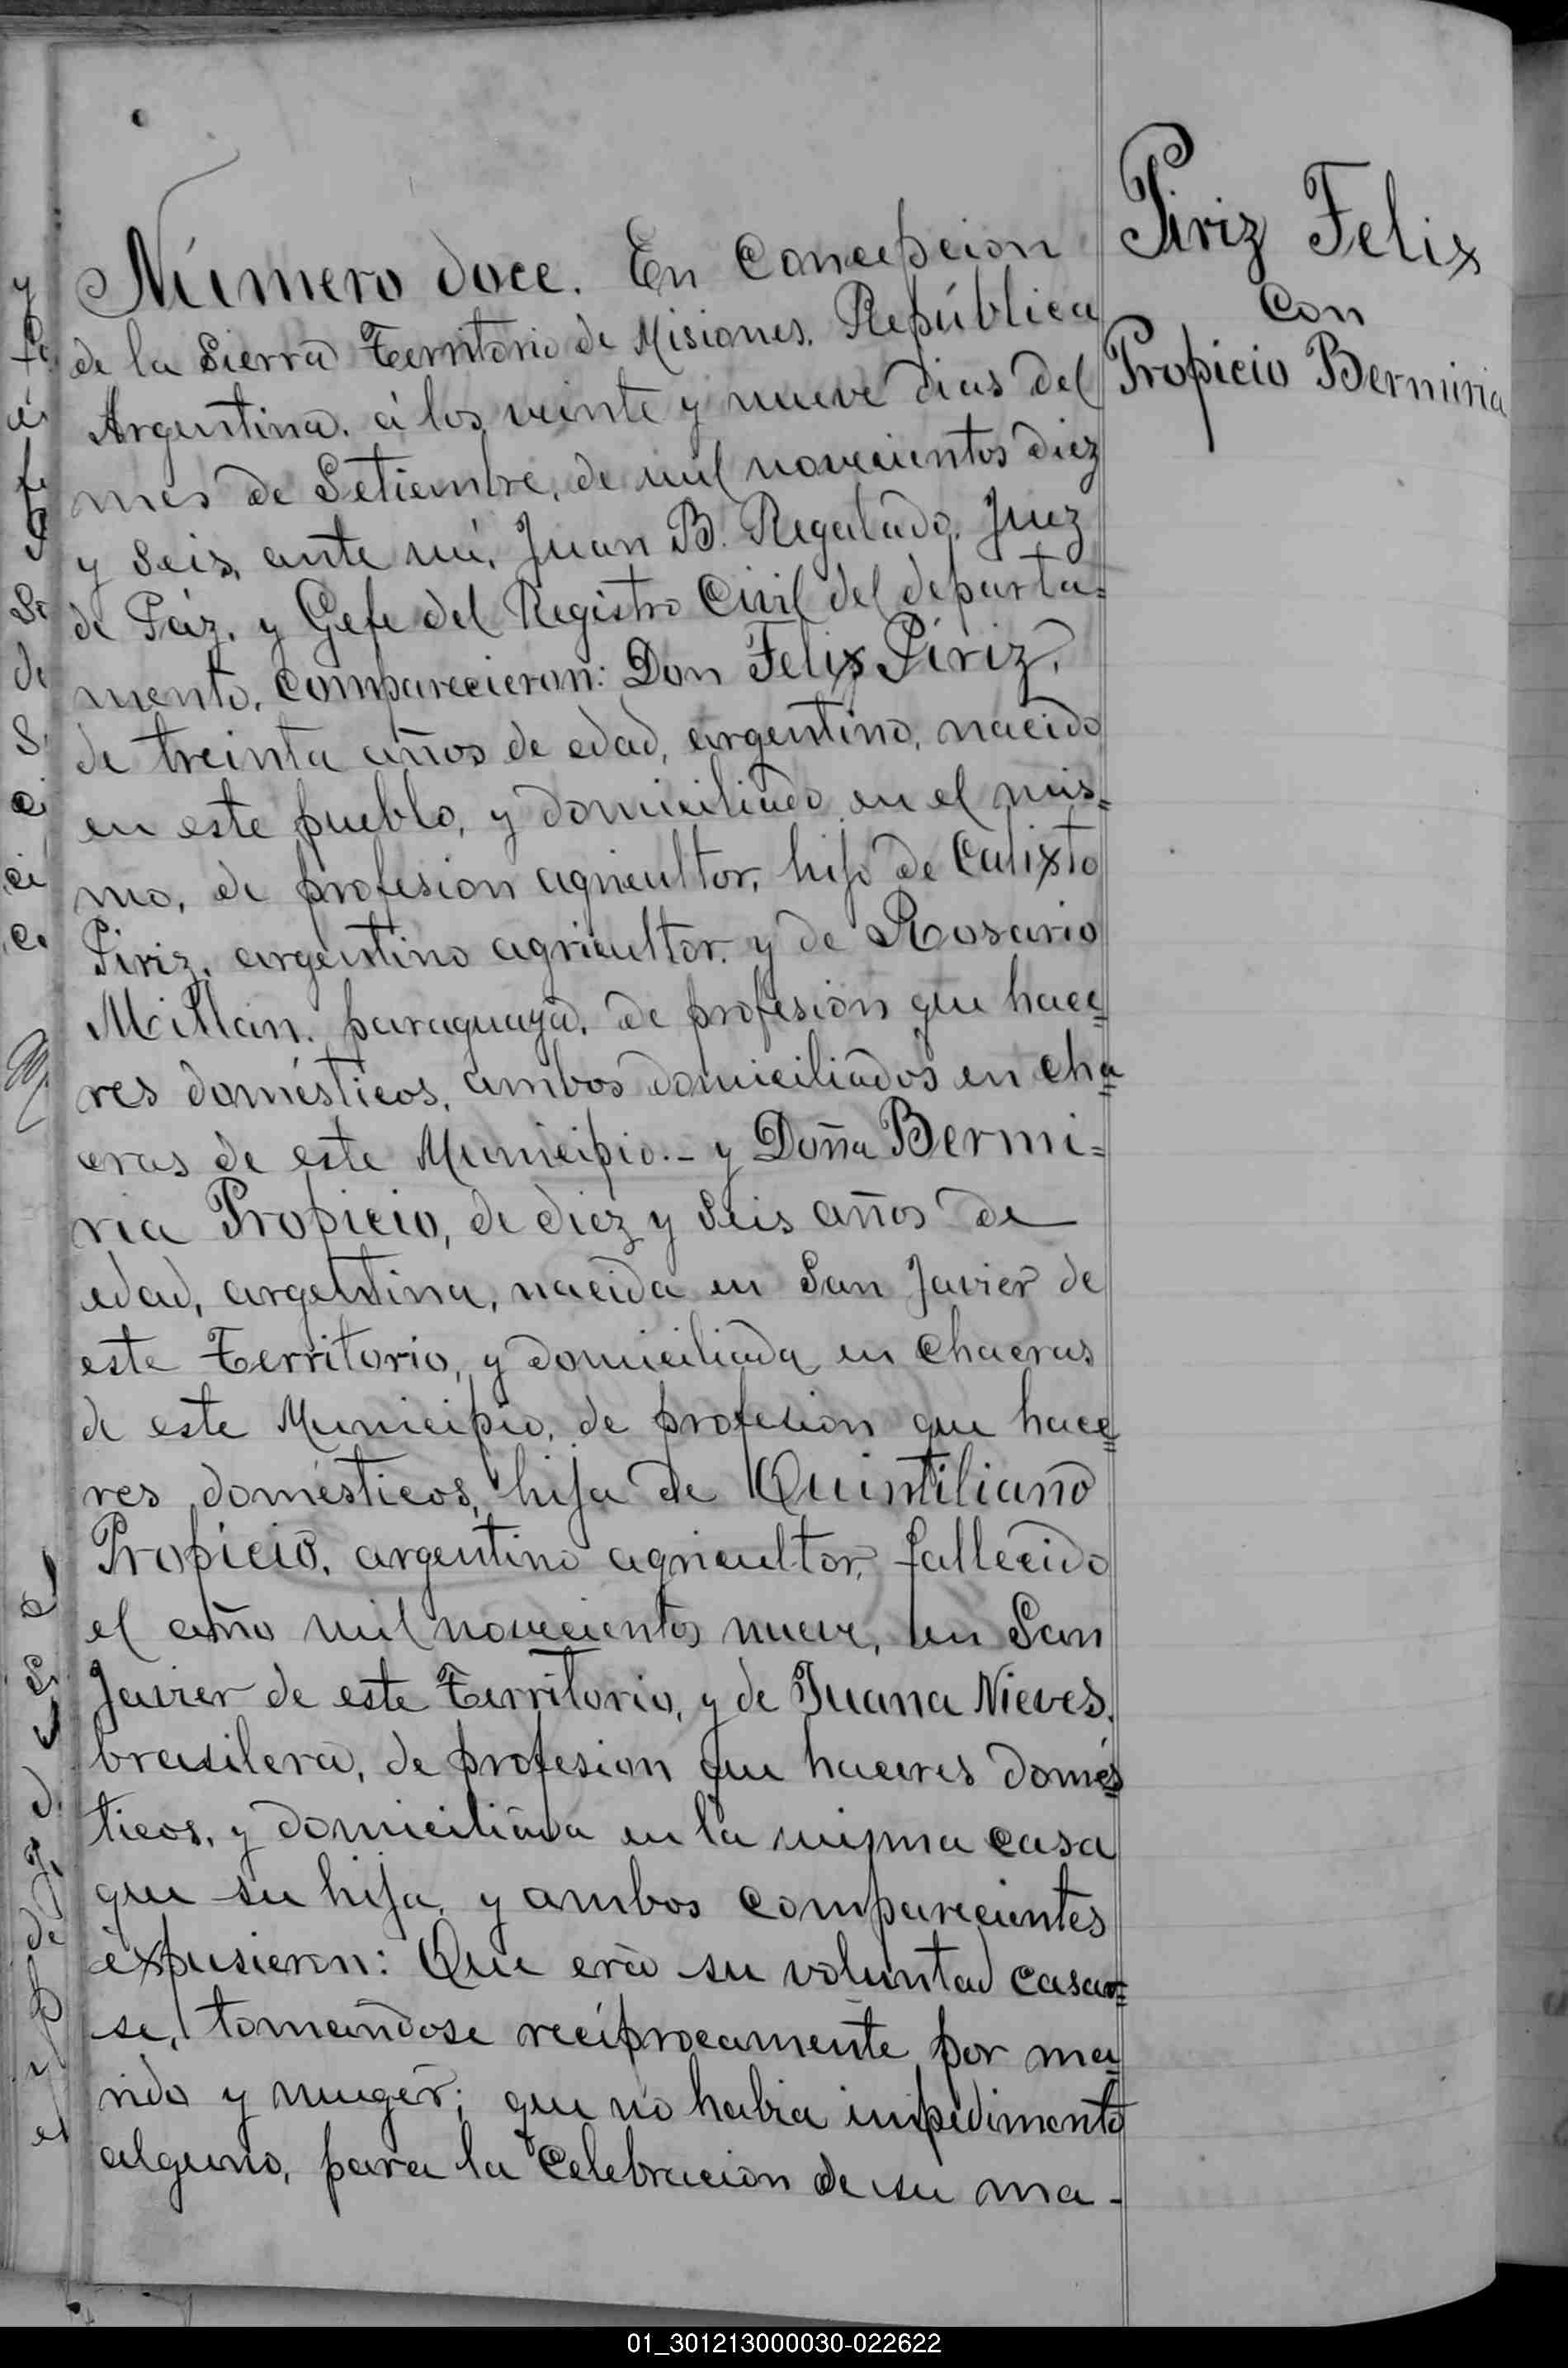 Número doce. En Concepcion
de la Sierra Territorio de Misiones. República
Argentina. á los veinte y nueve dias del
mes de Setiembre, de mil novecientos diez
y seis, ante mí, Juan B. Regalado. Juez
de Páz. y Gefe del Registro Civil del departa=
mento. comparecieron: Don Felix Píriz,
de treinta años de edad, argentino, nacido
en este pueblo, y domiciliado en el mis=
mo, de profesion agricultor, hijo de Calixto
Piriz. argentino agricultor. y de Rosario
Millan. paraguaya. de profesion que hace=
res domésticos, ambos domiciliados en cha=
cras de este Municipio.- y Doña Bermi=
ria Propicio, de diez y seis años de
edad, argentina, nacida en San Javier de
este Territorio, y domiciliada en chacras
de este Municipio, de profesion que hace=
res domésticos, hija de Quintiliano
Propicio. argentino agricultor. fallecido
el año mil novecientos nueve, en San
Javier de este Territorio, y de Juana Nieves.
brasilera, de profesion que haceres domés=
ticos, y domiciliada en la misma casa
que su hija, y ambos comparecientes
expusieron: Que era su voluntad casar=
se, tomandose recíprocamente por ma=
rido y muger; que no habia impedimento
alguno, para la celebracion de su ma-
Piriz Felix
Con
Propicio Bermiria
01_301213000030-022622